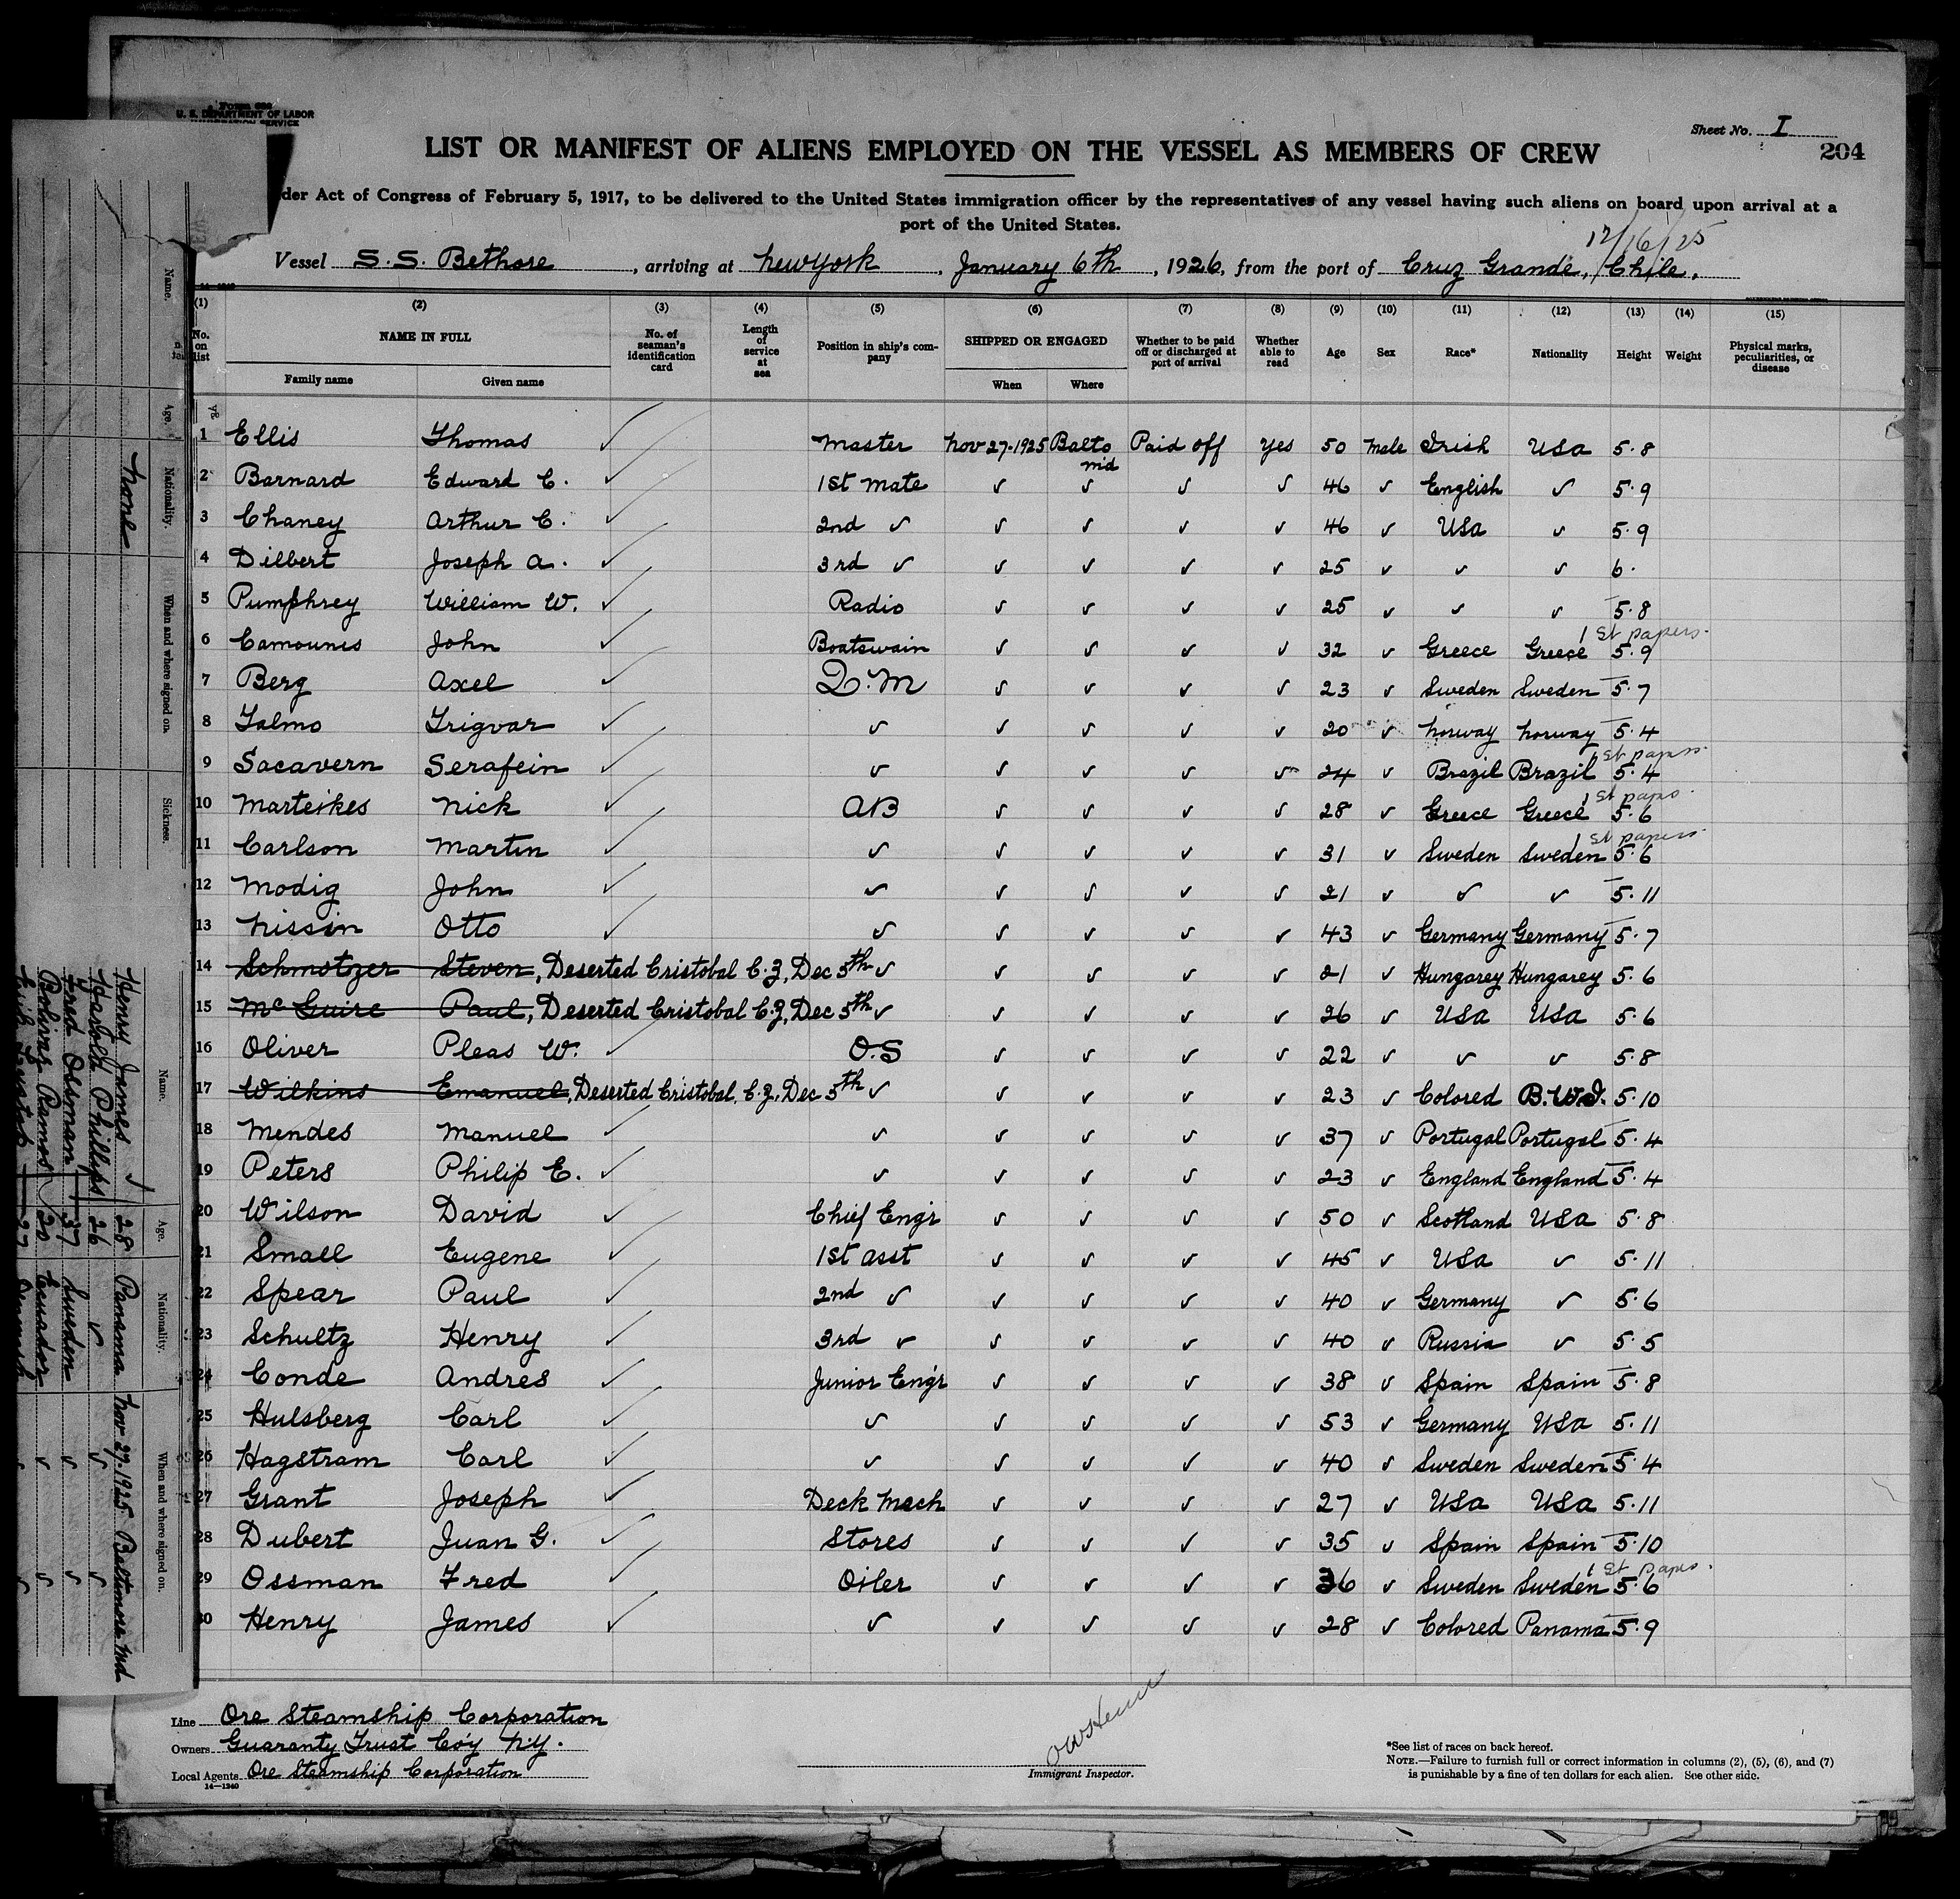 Form 689
U. S. DEPARTMENT OF LABOR
IMMIGRATION SERVICE
Sheet No. I
204
LIST OR MANIFEST OF ALIENS EMPLOYED ON THE VESSEL AS MEMBERS OF CREW
der Act of Congress of February 5, 1917, to be delivered to the United States immigration officer by the representatives of any vessel having such aliens on board upon arrival at a
port of the United States.
12/16/25
Vessel S.S. Bethore, arriving at New York, January 6th, 1926, from the port of Cruz Grande, Chile.
(1) (2) (3) (4) (5) (6) (7) (8) (9) (10) (11) (12) (13) (14) (15)
No. on list NAME IN FULL Family name Given name No. of seaman's identification card Length of service at sea Position in ship's company SHIPPED OR ENGAGED When Where Whether to be paid off or discharged at port of arrival Whether able to read Age Sex Race* Nationality Height Weight Physical marks, peculiarities, or disease
1 Ellis Thomas ✓ Master Nov 27-1925 Balto Md Paid off Yes 50 Male Irish USA 5.8
2 Barnard Edward C. ✓ 1st Mate ✓ ✓ ✓ ✓ 46 ✓ English ✓ 5.9
3 Chaney Arthur C. ✓ 2nd ✓ ✓ ✓ ✓ ✓ 46 ✓ USA ✓ 5.9
4 Dilbert Joseph A. ✓ 3rd ✓ ✓ ✓ ✓ ✓ 25 ✓ ✓ ✓ 6.
5 Pumphrey William W. ✓ Radio ✓ ✓ ✓ ✓ 25 ✓ ✓ ✓ 5.8
6 Camounis John ✓ Boatswain ✓ ✓ ✓ ✓ 32 ✓ Greece Greece 1st papers. 5.9
7 Berg Axel ✓ Q.M ✓ ✓ ✓ ✓ 23 ✓ Sweden Sweden 5.7
8 Talmo Trigvar ✓ ✓ ✓ ✓ ✓ ✓ 20 ✓ Norway Norway 5.4
9 Sacavern Serafein ✓ ✓ ✓ ✓ ✓ ✓ 24 ✓ Brazil Brazil 1st papers 5.4
10 Marteikes Nick ✓ AB ✓ ✓ ✓ ✓ 28 ✓ Greece Greece 1st papers. 5.6
11 Carlson Martin ✓ ✓ ✓ ✓ ✓ ✓ 31 ✓ Sweden Sweden 1st papers 5.6
12 Modig John ✓ ✓ ✓ ✓ ✓ ✓ 21 ✓ ✓ ✓ 5.11
13 Nissin Otto ✓ ✓ ✓ ✓ ✓ ✓ 43 ✓ Germany Germany 5.7
14 Schmotzer Steven, Deserted Cristobal C.Z, Dec 5th ✓ ✓ ✓ ✓ ✓ 21 ✓ Hungarey Hungarey 5.6
15 McGuire Paul, Deserted Cristobal C.Z, Dec 5th ✓ ✓ ✓ ✓ ✓ 26 ✓ USA USA 5.6
16 Oliver Pleas W. ✓ O.S ✓ ✓ ✓ ✓ 22 ✓ ✓ ✓ 5.8
17 Wilkins Emanuel, Deserted Cristobal, C.Z, Dec 5th ✓ ✓ ✓ ✓ ✓ 23 ✓ Colored B.W.I. 5.10
18 Mendes Manuel ✓ ✓ ✓ ✓ ✓ ✓ 37 ✓ Portugal Portugal 5.4
19 Peters Philip E. ✓ ✓ ✓ ✓ ✓ ✓ 23 ✓ England England 5.4
20 Wilson David ✓ Chief Engr ✓ ✓ ✓ ✓ 50 ✓ Scotland USA 5.8
21 Small Eugene ✓ 1st Asst ✓ ✓ ✓ ✓ 45 ✓ USA ✓ 5.11
22 Spear Paul ✓ 2nd ✓ ✓ ✓ ✓ ✓ 40 ✓ Germany ✓ 5.6
23 Schultz Henry ✓ 3rd ✓ ✓ ✓ ✓ ✓ 40 ✓ Russia ✓ 5.5
24 Conde Andres ✓ Junior Eng'r ✓ ✓ ✓ ✓ 38 ✓ Spain Spain 5.8
25 Hulsberg Carl ✓ ✓ ✓ ✓ ✓ ✓ 53 ✓ Germany USA 5.11
26 Hagstram Carl ✓ ✓ ✓ ✓ ✓ ✓ 40 ✓ Sweden Sweden 5.4
27 Grant Joseph ✓ Deck Mech ✓ ✓ ✓ ✓ 27 ✓ USA USA 5.11
28 Dubert Juan G. ✓ Stores ✓ ✓ ✓ ✓ 35 ✓ Spain Spain 5.10
29 Ossman Fred ✓ Oiler ✓ ✓ ✓ ✓ 36 ✓ Sweden Sweden 1st papers. 5.6
30 Henry James ✓ ✓ ✓ ✓ ✓ ✓ 28 ✓ Colored Panama 5.9
Line Ore Steamship Corporation
Owners Guaranty Trust Co'y N.Y.
Local Agents Ore Steamship Corporation
14—1240
Immigrant Inspector.
*See list of races on back hereof.
NOTE.—Failure to furnish full or correct information in columns (2), (5), (6), and (7)
is punishable by a fine of ten dollars for each alien. See other side.
Name. Age. Nationality. When and where signed on. Sickness.
None
Name. Age. Nationality. When and where signed on.
Henry James 28 Panama Nov 27-1925 Baltimore Md
Harold Phillips 26 ✓ ✓ ✓
Fred Ossman 37 Sweden ✓ ✓
Bolivar Ramos 20 Ecuador ✓ ✓
27